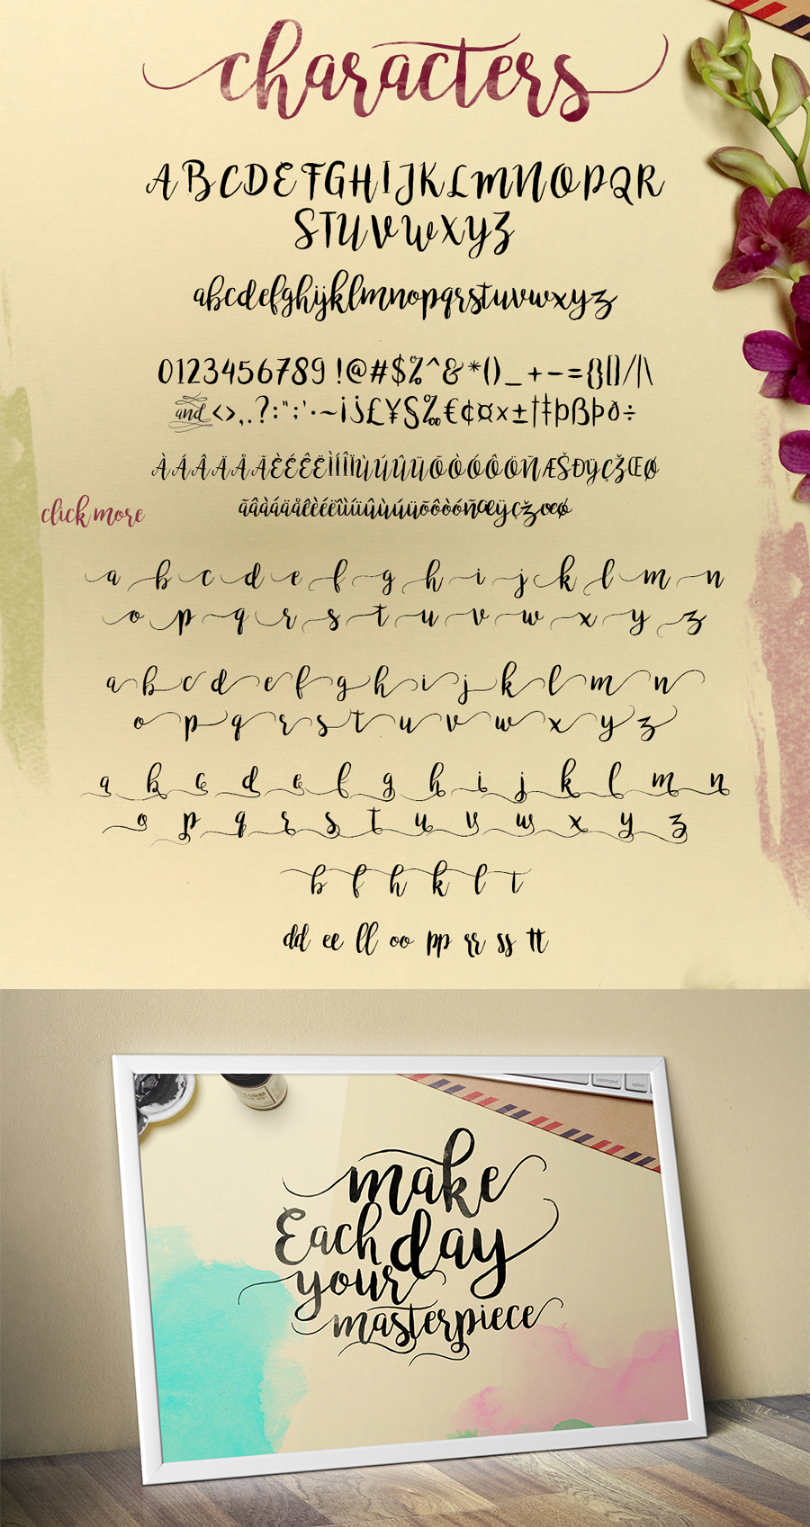 characters
ABCDEFGHIJKLMNOPQR
STUVWXYZ
abcdefghijklmnopqrstuvwxyz
0123456789 !@#$%^&*()_+-={}[]/|\
and<>,.?:";'·~¡¿£¥§‰€¢¤×±†‡þßÞð÷
click more
a b c d e f g h i j k l m n
o p q r s t u v w x y z
a b c d e f g h i j k l m n
o p q r s t u v w x y z
a b c d e f g h i j k l m n
o p q r s t u v w x y z
b f h k l t
dd ee ll oo pp rr ss tt
make
Each day
your
masterpiece